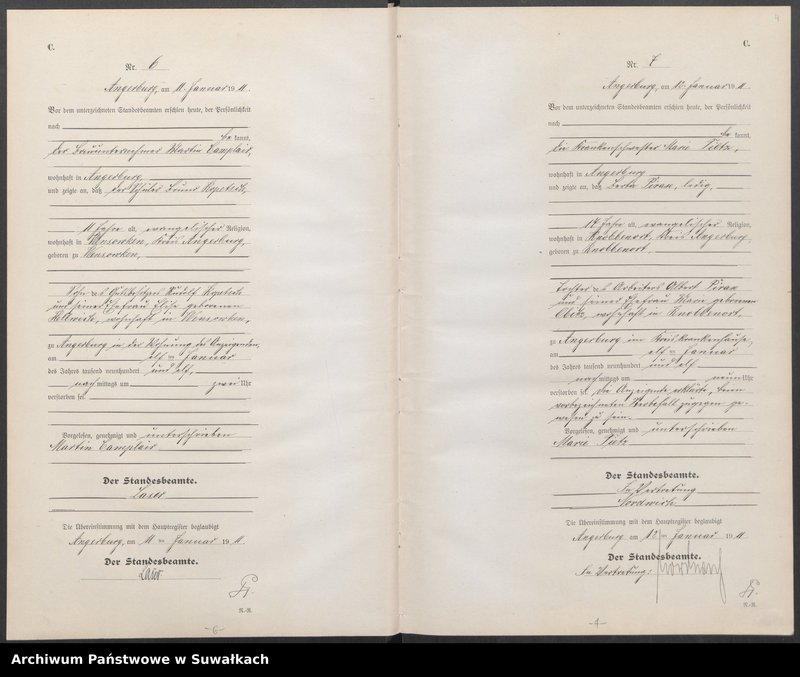 C.
Nr. 6
Angerburg, am 11. Januar 1911.
Vor dem unterzeichneten Standesbeamten erschien heute, der Persönlichkeit
nach
be kannt,
der Bauunternehmer Martin Camplair,
wohnhaft in Angerburg,
und zeigte an, daß der Schüler Bruno
11 Jahre alt, evangelischer Religion,
wohnhaft in Wensowken, Kreis Angerburg,
geboren zu Wensowken,
Sohn des Gutsbesitzers Rudolf
und seiner Ehefrau Elise geborenen
wohnhaft in Wensowken,
zu Angerburg in der Wohnung des Anzeigenden,
am elften Januar
des Jahrs tausend neunhundert und elf,
nach mittags um zwei Uhr
verstorben sei.
Vorgelesen, genehmigt und unterschrieben
Martin Camplair
Der Standesbeamte.
Laser
Die Übereinstimmung mit dem Hauptregister beglaubigt
Angerburg, am 11ten Januar 1911.
Der Standesbeamte.
Laser
R.-R.
-6-
4
C.
Nr. 7
Angerburg, am 12. Januar 1911.
Vor dem unterzeichneten Standesbeamten erschien heute, der Persönlichkeit
nach
be kannt,
die Krankenschwester Marie Tietz,
wohnhaft in Angerburg
und zeigte an, daß Berta Piran, ledig,
17 Jahre alt, evangelischer Religion,
wohnhaft in Knobbenort, Kreis Angerburg,
geboren zu Knobbenort,
Tochter des Arbeiters Albert Piran
und seiner Ehefrau Marie geborenen
wohnhaft in Knobbenort,
zu Angerburg im Kreiskrankenhause,
am elften Januar
des Jahrs tausend neunhundert und elf
nach mittags um neun Uhr
verstorben sei. Die Anzeigende erklärte, beim
vorbezeichneten Sterbefall zugegen ge-
wesen zu sein.
Vorgelesen, genehmigt und unterschrieben
Marie Tietz
Der Standesbeamte.
In Vertretung
Die Übereinstimmung mit dem Hauptregister beglaubigt
Angerburg am 12ten Januar 1911.
Der Standesbeamte.
In Vertretung:
R.-R.
-4-
Archiwum Państwowe w Suwałkach